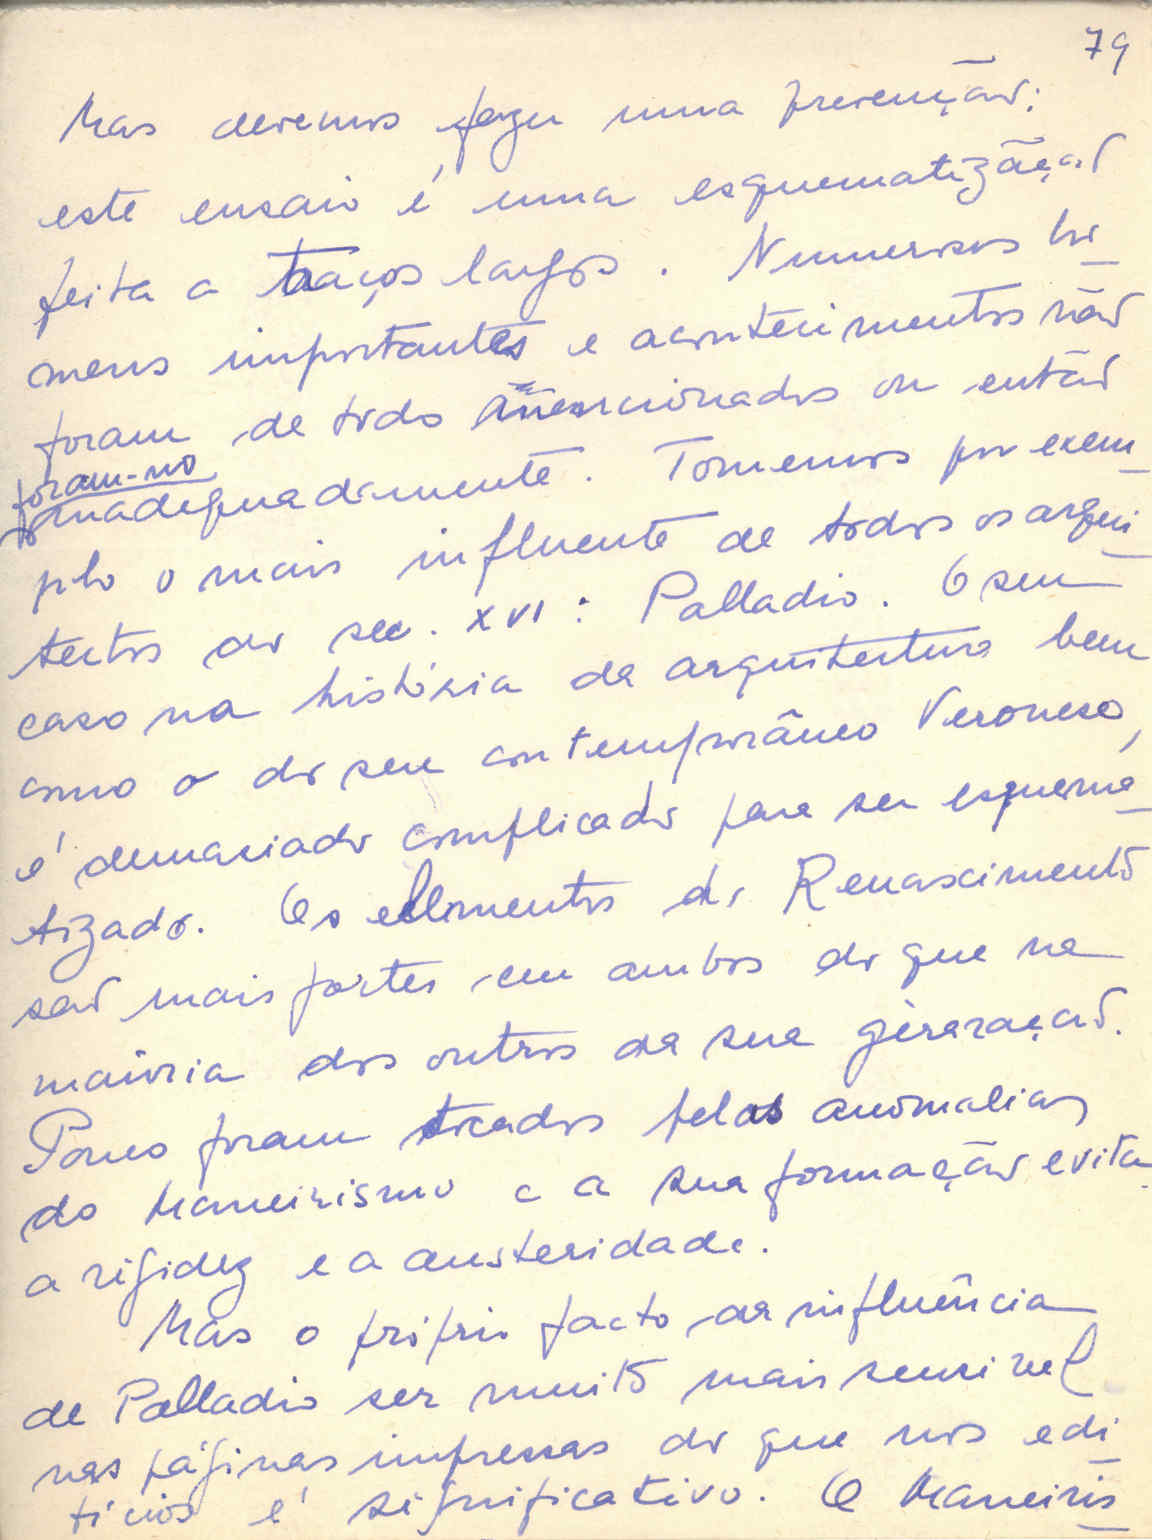 79
Mas devemos fazer uma prevenção:
este ensaio é uma esquematização
feita a traços largos. Numerosos ho
mens importantes e acontecimentos não
foram de todo mencionados ou então
foram-no
inadequadamente. Tomemos por exem
plo o mais influente de todos os arqui
tectos do sec. XVI: Palladio. O seu
caso na história da arquitectura bem
como o do seu contemporâneo Veronese,
é demasiado complicado para ser esquema
tizado. Os elementos do Renascimento
são mais fortes em ambos do que na
maioria dos outros da sua geração.
Pouco foram tocados pelas anomalias
do Maneirismo e a sua formação evita
a rigidez e a austeridade.
Mas o próprio facto da influência
de Palladio ser muito mais sensivel
nas páginas impressas do que nos edi
fícios é significativo. O Maneiris